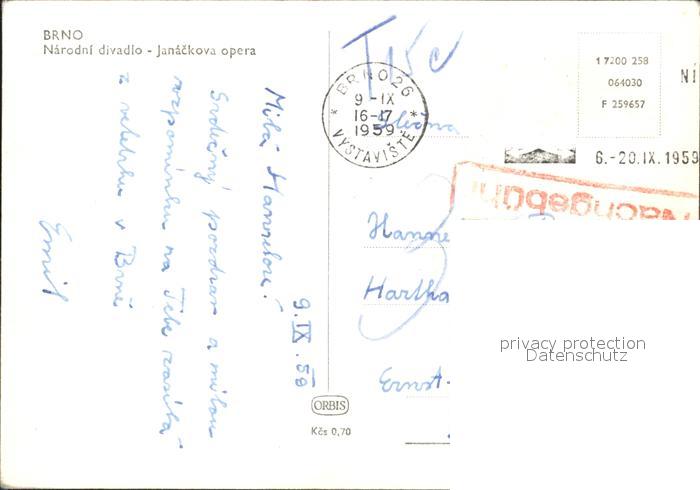 BRNO
Národní divadlo - Janáčkova opera
Milá Hannelore!
Srdečný pozdrav a milou
vzpomínku na Tebe zasílá
z veletrhu v Brně
Emil
9. IX. 59
ORBIS
Kčs 0,70
T 15c
BRNO 26
9 -IX
16-17
1959
* VÝSTAVIŠTĚ *
17200 258
064030
F 259657
6.-20.IX.1959
Nachgebühr
Slečna
Hanne
Hartha
Ernst-
privacy protection
Datenschutz